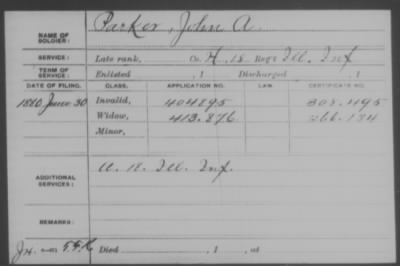 NAME OF SOLDIER: Parker, John A.
SERVICE: Late rank, Co. H, 18 Reg't Ill. Inf
TERM OF SERVICE: Enlisted , 1 Discharged , 1
DATE OF FILING. CLASS. APPLICATION NO. LAW. CERTIFICATE NO.
1880 June 30 Invalid, 404895 308.495
Widow, 413.876 266.134
Minor,
ADDITIONAL SERVICES: Ill. Inf.
REMARKS:
Died , 1 , at